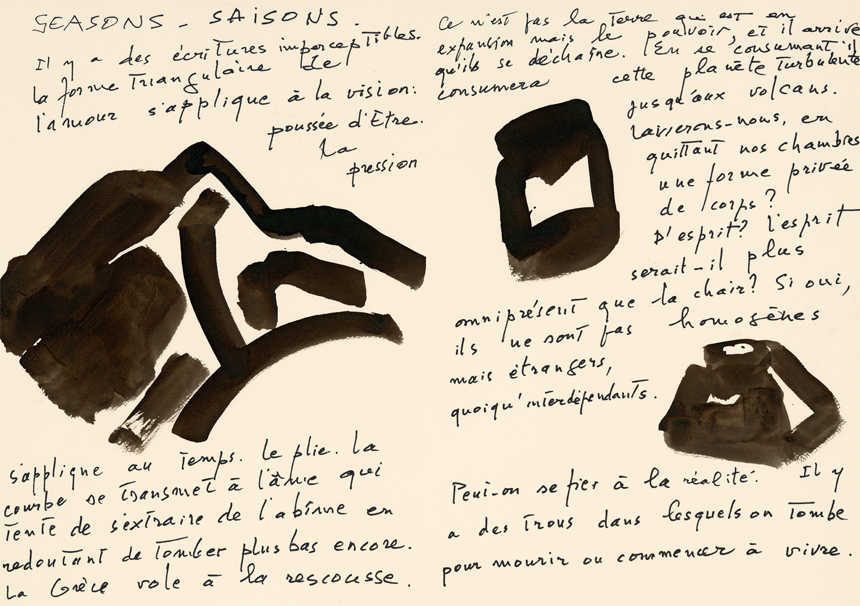 SEASONS - SAISONS.
Il y a des écritures imperceptibles.
la forme Triangulaire de
l'amour s'applique à la vision:
poussée d'Etre.
la
pression
s'applique au Temps. le plie. la
courbe se transmet à l'âme qui
Tente de s'extraire de l'abîme en
redoutant de tomber plus bas encore.
La Grèce vole à la rescousse.
Ce n'est pas la Terre qui est en
expansion mais le pouvoir, et il arrive
qu'ils se déchaîne. En se consumant il
consumera cette planète Turbulente
jusqu'aux volcans.
Laisserons-nous, en
quittant nos chambres
une forme privée
de corps?
D'esprit? l'esprit
serait-il plus
omniprésent que la chair? Si oui,
ils ne sont pas homogènes
mais étrangers,
quoiqu'interdépendants.
Peut-on se fier à la réalité. Il y
a des trous dans lesquels on tombe
pour mourir ou commencer à vivre.